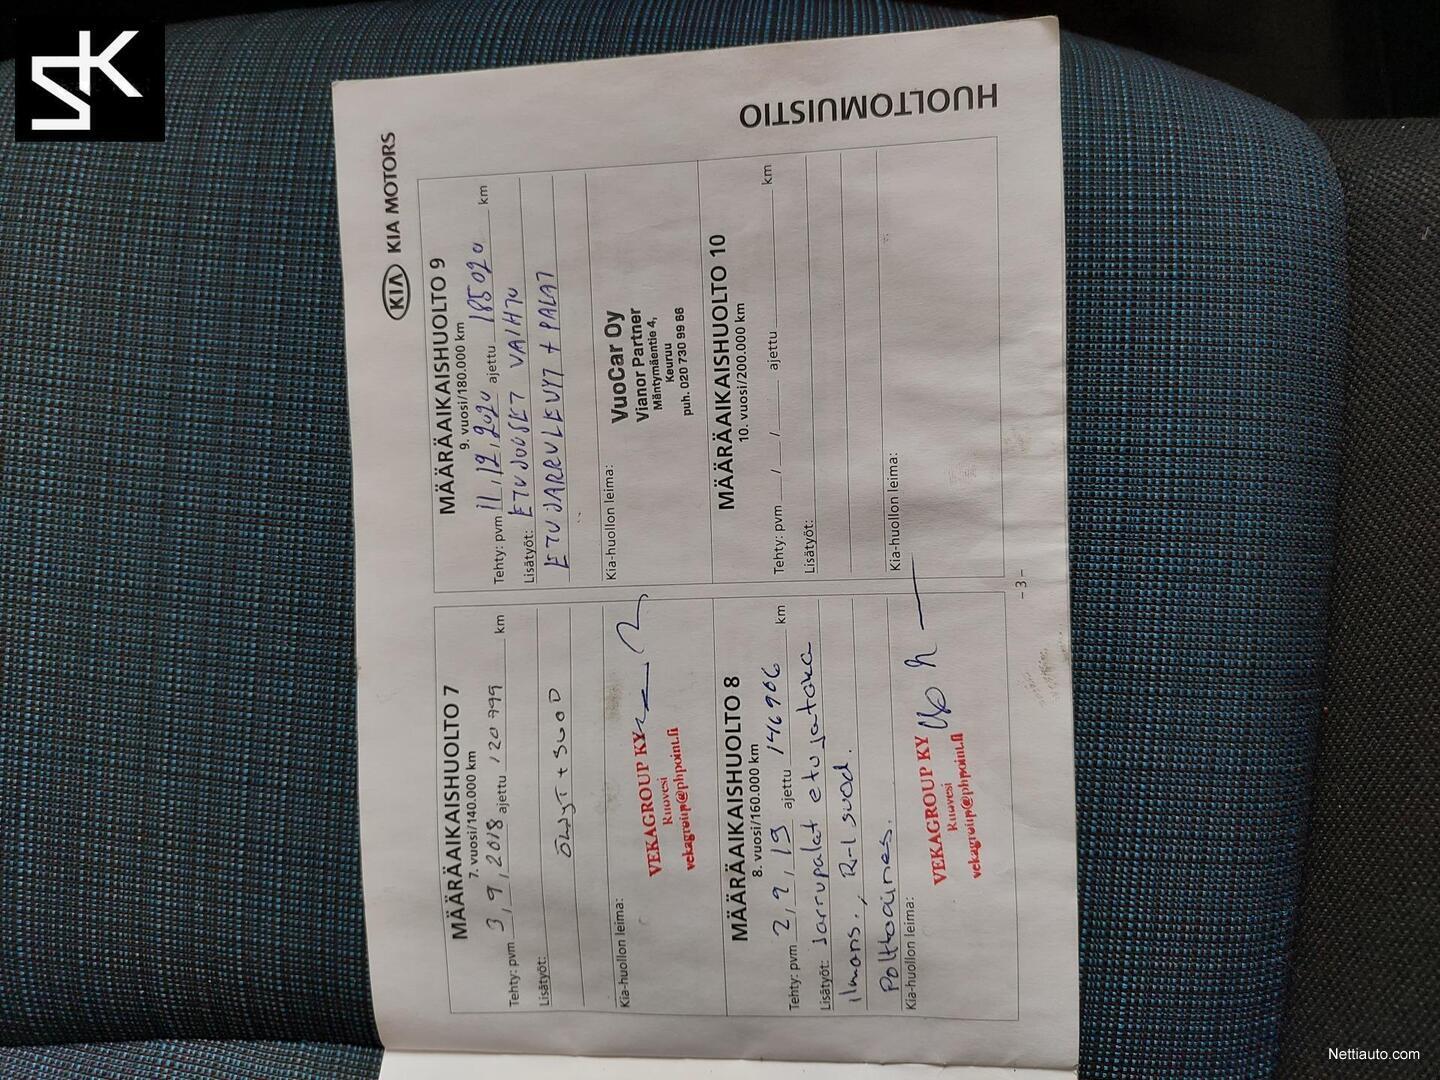 SK
KIA KIA MOTORS
HUOLTOMUISTIO
MÄÄRÄAIKAISHUOLTO 7
7. vuosi/140.000 km
Tehty: pvm 3, 9, 2018 ajettu 120 999 km
Lisätyöt:
ÖLJYT + SUOD
Kia-huollon leima:
VEKAGROUP KY
Ruovesi
vekagroup@phpoint.fi
MÄÄRÄAIKAISHUOLTO 8
8. vuosi/160.000 km
Tehty: pvm 2, 9, 19 ajettu 146906 km
Lisätyöt: Jarrupalat etu ja taka
ilmans., R-i suod.
Polttoaines.
Kia-huollon leima:
VEKAGROUP KY
Ruovesi
vekagroup@phpoint.fi
MÄÄRÄAIKAISHUOLTO 9
9. vuosi/180.000 km
Tehty: pvm 11, 12, 2020 ajettu 185020 km
Lisätyöt: ETUJOUSET VAIHTO
ETUJARRULEVYT + PALAT
Kia-huollon leima:
VuoCar Oy
Vianor Partner
Mäntymäentie 4,
Keuruu
puh. 020 730 99 66
MÄÄRÄAIKAISHUOLTO 10
10. vuosi/200.000 km
Tehty: pvm / / ajettu km
Lisätyöt:
Kia-huollon leima:
- 3 -
Nettiauto.com